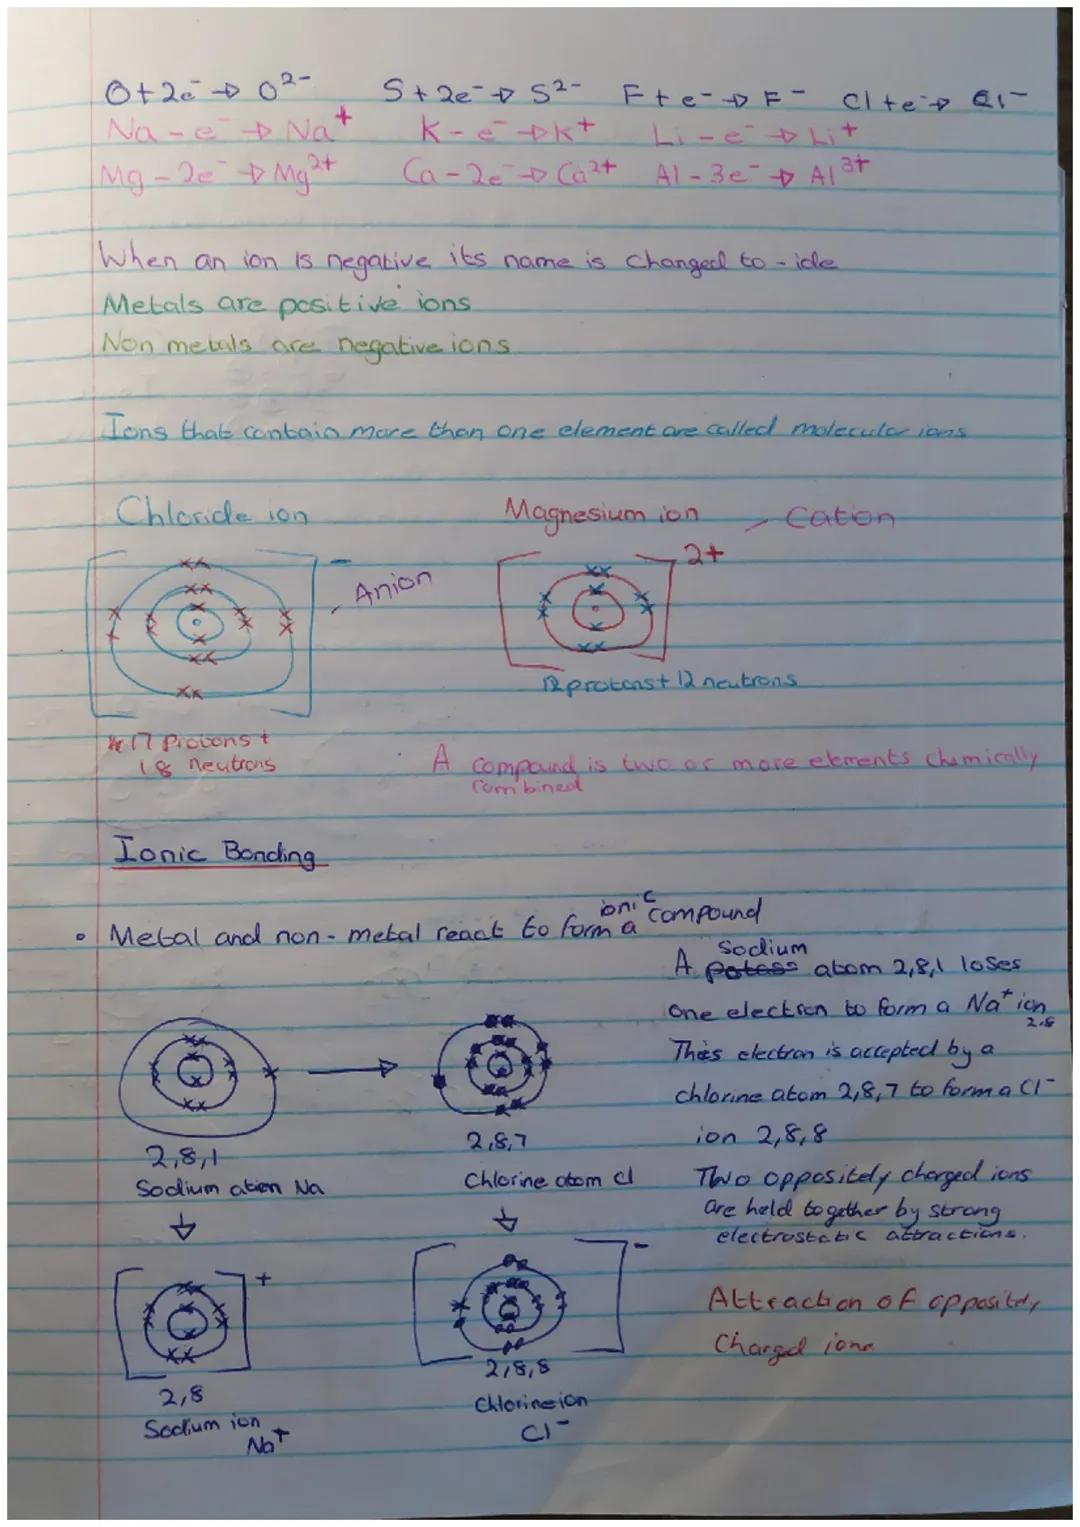 O+2e⁻ → O²⁻ S+2e⁻ → S²⁻ F+e⁻ → F⁻ Cl+e⁻ → Cl⁻
Na-e⁻ → Na⁺ K-e⁻ → K⁺ Li-e⁻ → Li⁺
Mg-2e⁻ → Mg²⁺ Ca-2e⁻ → Ca²⁺ Al-3e⁻ → Al³⁺
When an ion is negative its name is changed to -ide
Metals are positive ions
Non metals are negative ions
Ions that contain more than one element are called molecular ions
Chloride ion Magnesium ion - Cation
- 2+
- Anion
12 protons + 12 neutrons
17 Protons +
18 neutrons
A compound is two or more elements chemically
combined
Ionic Bonding
• Metal and non-metal react to form a ionic compound
A Sodium atom 2,8,1 loses
one electron to form a Na⁺ ion
2,8
This electron is accepted by a
chlorine atom 2,8,7 to form a Cl⁻
ion 2,8,8
Two oppositely charged ions
are held together by strong
electrostatic attractions.
Attraction of oppositely
Charged ions
2,8,1 2,8,7
Sodium atom Na Chlorine atom Cl
+ -
2,8 2,8,8
Sodium ion Chlorine ion
Na⁺ Cl⁻